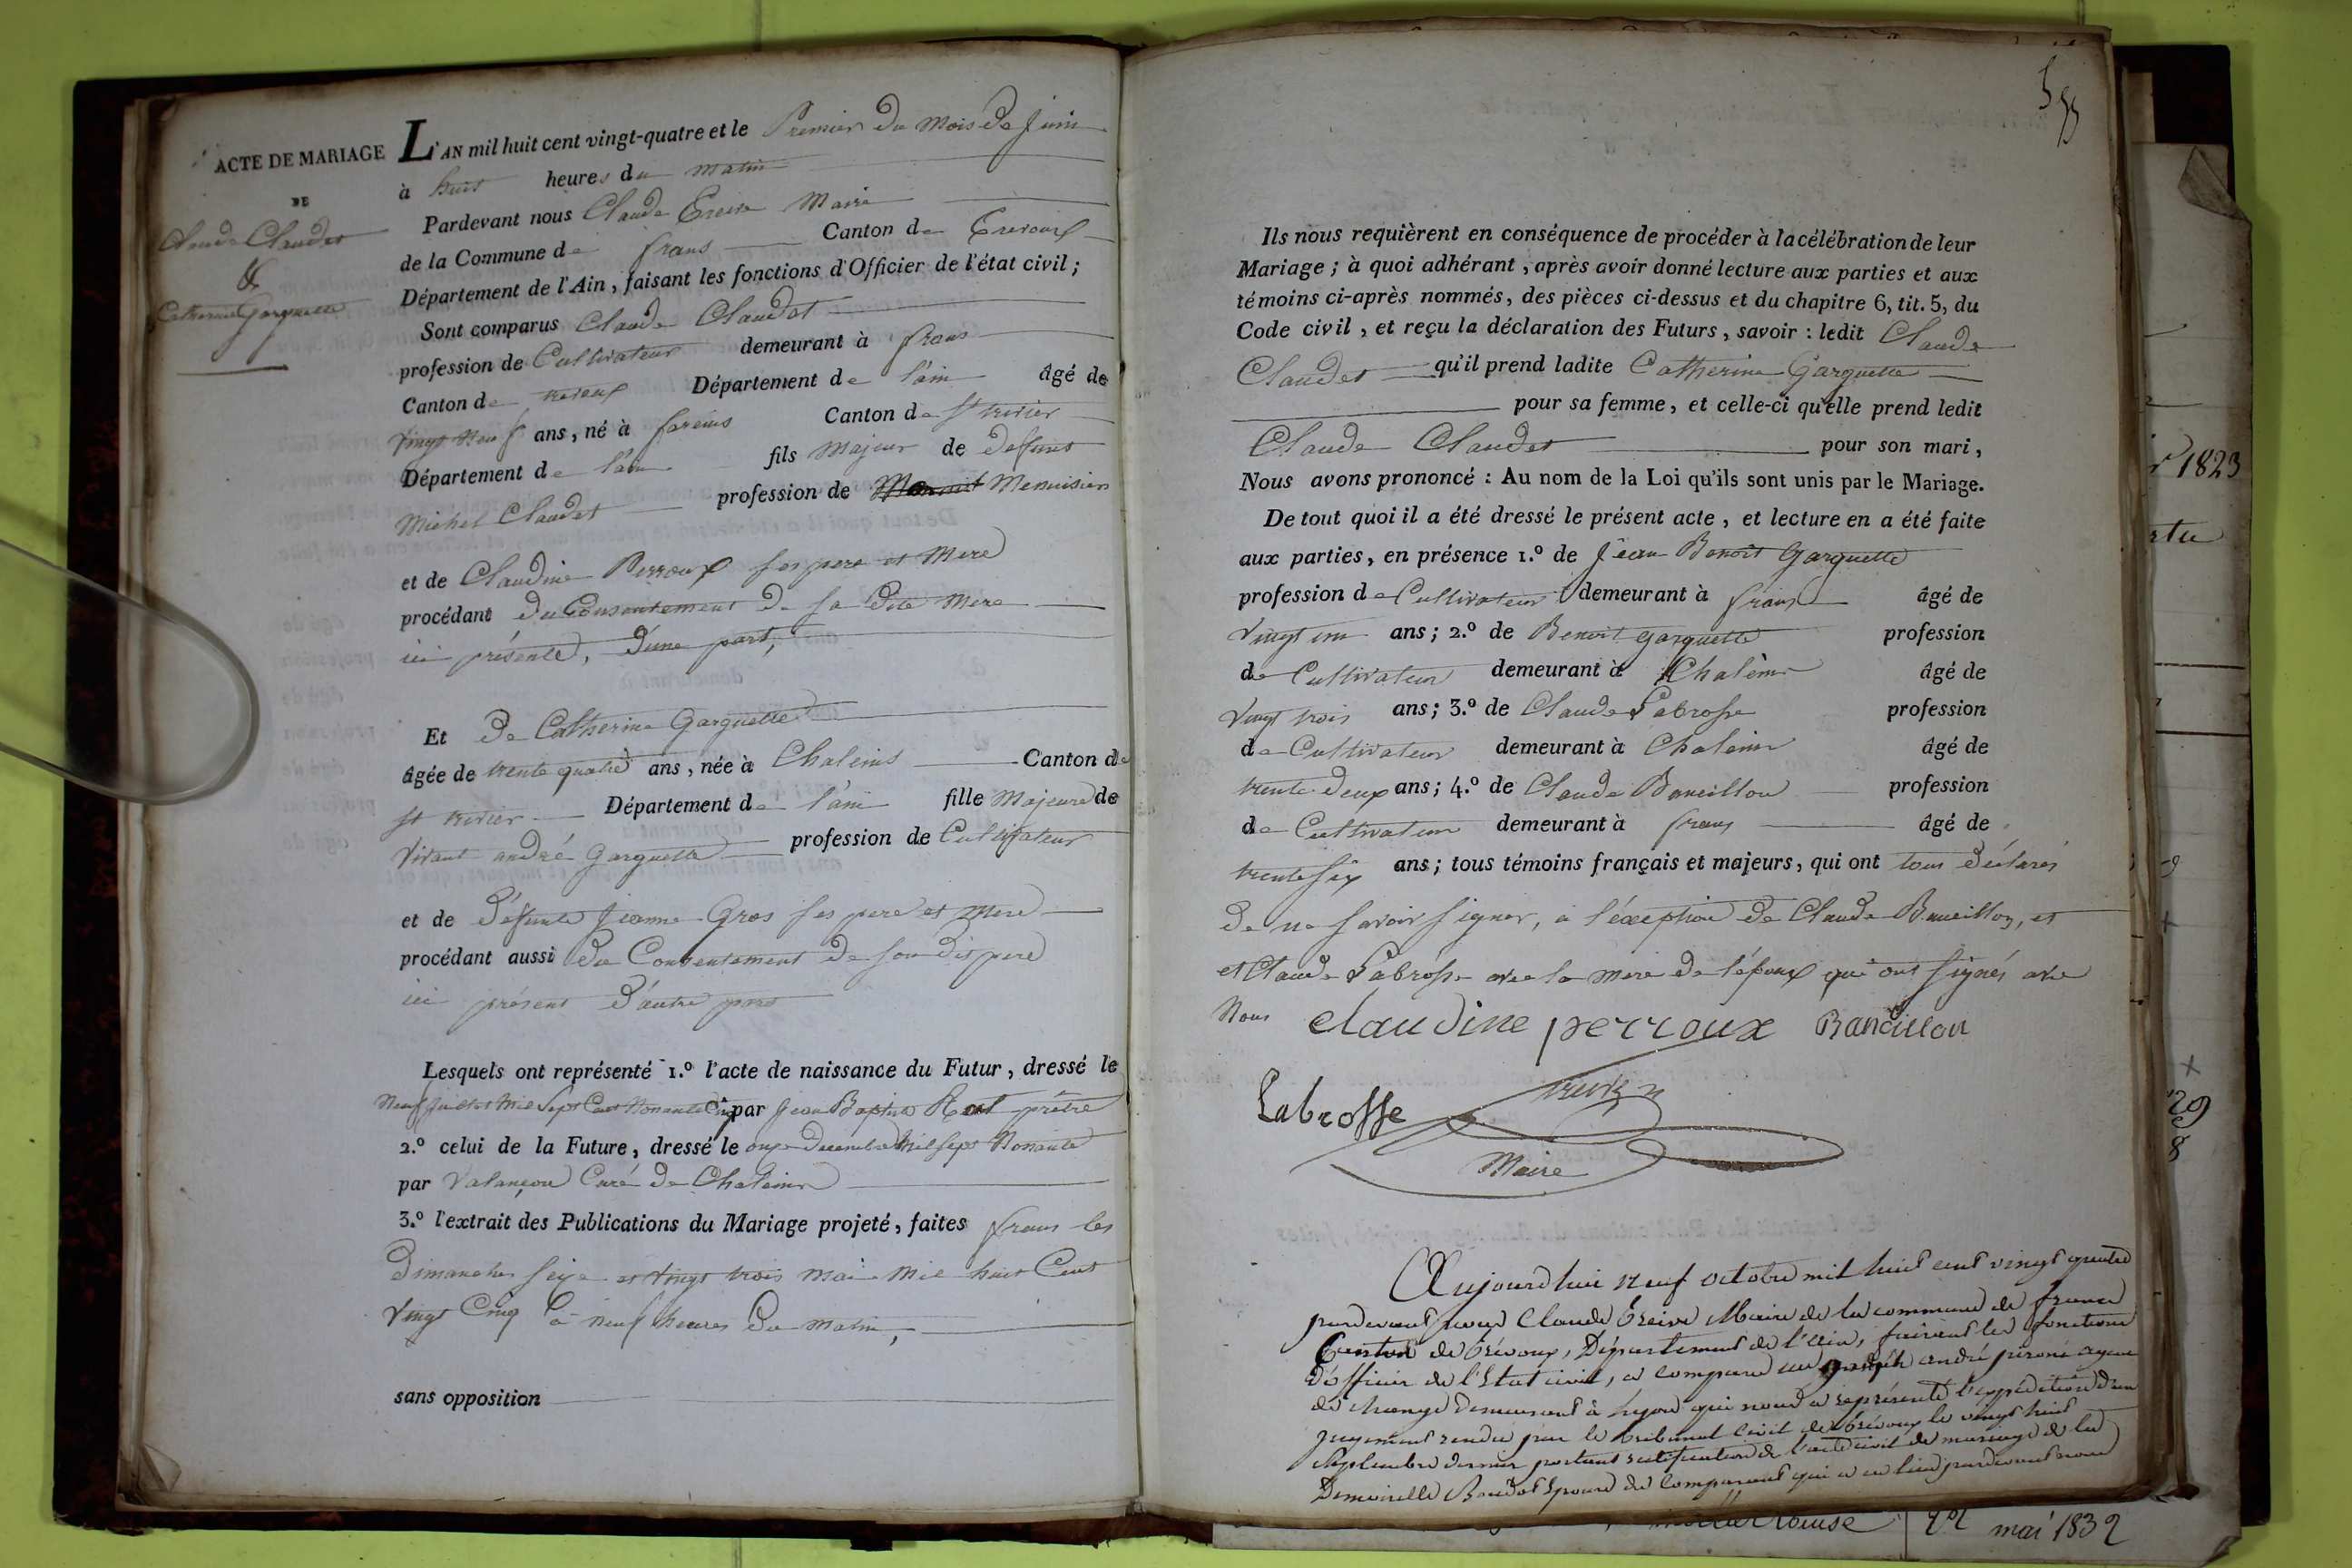 ACTE DE MARIAGE
DE
Claude Claudet
&
Catherine Garguette
L'AN mil huit cent vingt-quatre et le Premier du Mois de Juin
à huit heures du matin
Pardevant nous Claude Maire
de la Commune de frans Canton de Trevoux
Département de l'Ain, faisant les fonctions d'Officier de l'état civil;
Sont comparus Claude Claudet
profession de Cultivateur demeurant à frans
Canton de trevoux Département de l'ain âgé de
Vingt Neuf ans, né à fareins Canton de St trivier
Département de l'ain fils Majeur de deffunt
Michel Claudet profession de Menuisier
et de Claudine Perroux ses pere et Mere
procédant du Consentement de sa dite Mere
ici présente, d'une part,
Et De Catherine Garguette
âgée de trente quatre ans, née à Chaleins Canton de
St trivier Département de l'ain fille Majeure de
Vivant andré Garguette profession de Cultivateur
et de défunte Jeanne Gros ses pere et Mere
procédant aussi du Consentement de son dit pere
ici présent d'autre part
Lesquels ont représenté 1.º l'acte de naissance du Futur, dressé le
Neuf Juillet Mil Sept Cent Nonante Cinq par Jean Baptiste prêtre
2.º celui de la Future, dressé le onze Decembre Mil Sept Nonante
par Valançon Curé de Chaleins
3.º l'extrait des Publications du Mariage projeté, faites frans les
Dimanches Seize et Vingt trois Mai Mil huit Cent
Vingt Cinq à Neuf heures du Matin,
sans opposition
Ils nous requièrent en conséquence de procéder à la célébration de leur
Mariage; à quoi adhérant, après avoir donné lecture aux parties et aux
témoins ci-après nommés, des pièces ci-dessus et du chapitre 6, tit. 5, du
Code civil, et reçu la déclaration des Futurs, savoir: ledit Claude
Claudet qu'il prend ladite Catherine Garguette
pour sa femme, et celle-ci qu'elle prend ledit
Claude Claudet pour son mari,
Nous avons prononcé: Au nom de la Loi qu'ils sont unis par le Mariage.
De tout quoi il a été dressé le présent acte, et lecture en a été faite
aux parties, en présence 1.º de Jean Benoit Garguette
profession de Cultivateur demeurant à frans âgé de
Vingt un ans; 2.º de Benoit Garguette profession
de Cultivateur demeurant à Chaleins âgé de
Vingt trois ans; 3.º de Claude Labrosse profession
de Cultivateur demeurant à Chaleins âgé de
trente deux ans; 4.º de Claude Bancillon profession
de Cultivateur demeurant à frans âgé de
trente six ans; tous témoins français et majeurs, qui ont tous déclarés
de ne savoir signer, à l'éxeption de Claude Bancillon, et
et Claude Labrosse avec la mere de l'époux qui ont signés avec
Nous claudine perroux Bancillon
Labrosse
Maire
Aujourd'hui neuf octobre mil huit cent vingt quatre
pardevant nous Claude Maire de la commune de frans
Canton de Trévoux, Département de l'ain, faisant les fonctions
d'officier de l'Etat civil, a comparu andré
de change demeurant à Lyon qui nous a représenté l'expédition d'un
jugement rendu par le tribunal civil de Trévoux le vingt huit
Septembre dernier portant rectification de l'acte civil de mariage de la
Demoiselle Boudot Epouse du Comparant qui a eu lieu pardevant nous
1823
29
8
mai 1832